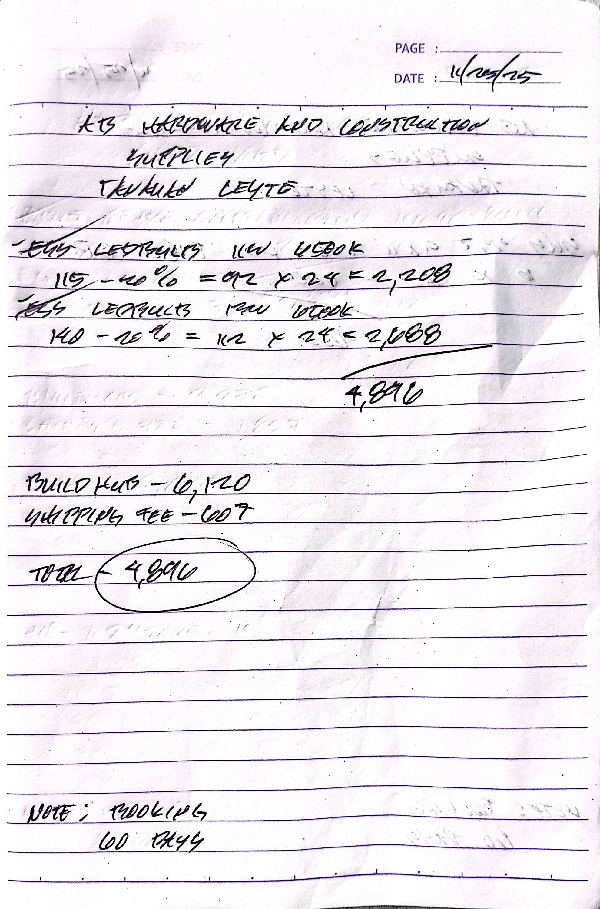 PAGE :
DATE : 11/25/25
ATB HARDWARE AND CONSTRUCTION
SUPPLIES
TANAUAN LEYTE
LEDBULB 11W
115 - 20% = 92 x 24 = 2,208
LEDBULB 13W
140 - 20% = 112 x 24 = 2,688
4,896
BUILD HUB - 6,120
SHIPPING FEE - 607
TOTAL - 4,896
NOTE : BOOKING
60 DAYS